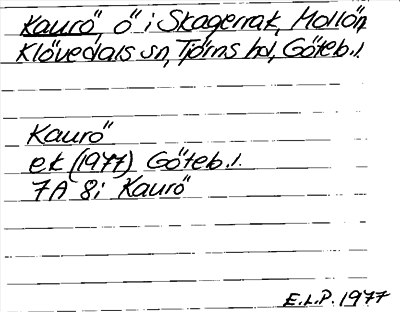 Kaurö, ö i Skagerrak, Mollön,
Klövedals sn, Tjörns hd, Göteb. l.
Kaurö
ek (1977) Göteb. l.
7A 8i Kaurö
E.L.P. 1977